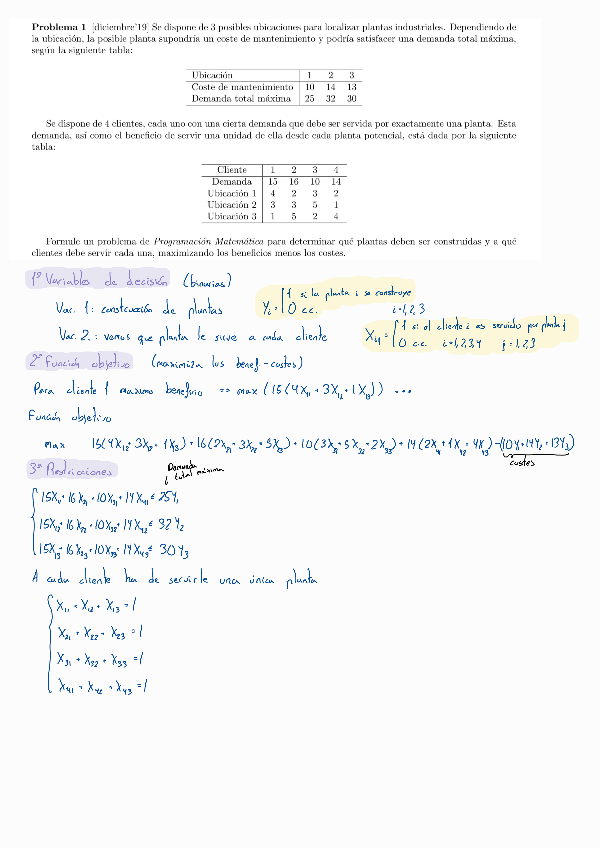 Problema 1 [diciembre'19] Se dispone de 3 posibles ubicaciones para localizar plantas industriales. Dependiendo de
la ubicación, la posible planta supondría un coste de mantenimiento y podría satisfacer una demanda total máxima,
según la siguiente tabla:
Ubicación 1 2 3
Coste de mantenimiento 10 14 13
Demanda total máxima 25 32 30
Se dispone de 4 clientes, cada uno con una cierta demanda que debe ser servida por exactamente una planta. Esta
demanda, así como el beneficio de servir una unidad de ella desde cada planta potencial, está dada por la siguiente
tabla:
Cliente 1 2 3 4
Demanda 15 16 10 14
Ubicación 1 4 2 3 2
Ubicación 2 3 3 5 1
Ubicación 3 1 5 2 4
Formule un problema de Programación Matemática para determinar qué plantas deben ser construidas y a qué
clientes debe servir cada una, maximizando los beneficios menos los costes.
1º Variables de decisión (binarias)
Var. 1: construcción de plantas Yi = { 1 si la planta i se construye
0 c.c. i=1,2,3
Var. 2.: vemos que planta le sirve a cada cliente Xij = { 1 si al cliente i es servido por planta j
0 c.c. i=1,2,3,4 j=1,2,3
2º Función objetivo (maximiza los benef - costes)
Para cliente 1 maximo beneficio => max (15(4X11 + 3X12 + 1X13)) ...
Función objetivo
max 15(4X12 + 3X12 + 1X3) + 16(2X21 + 3X22 + 5X23) + 10(3X31 + 5X32 + 2X33) + 14(2X41 + 1X42 + 4X43) - (10Y1 + 14Y2 + 13Y3)
costes
3º Restricciones
Demanda
total máxima
15X11 + 16X21 + 10X31 + 14X41 ≤ 25Y1
15X12 + 16X22 + 10X32 + 14X42 ≤ 32Y2
15X13 + 16X23 + 10X33 + 14X43 ≤ 30Y3
A cada cliente ha de servirle una única planta
X11 + X12 + X13 = 1
X21 + X22 + X23 = 1
X31 + X32 + X33 = 1
X41 + X42 + X43 = 1